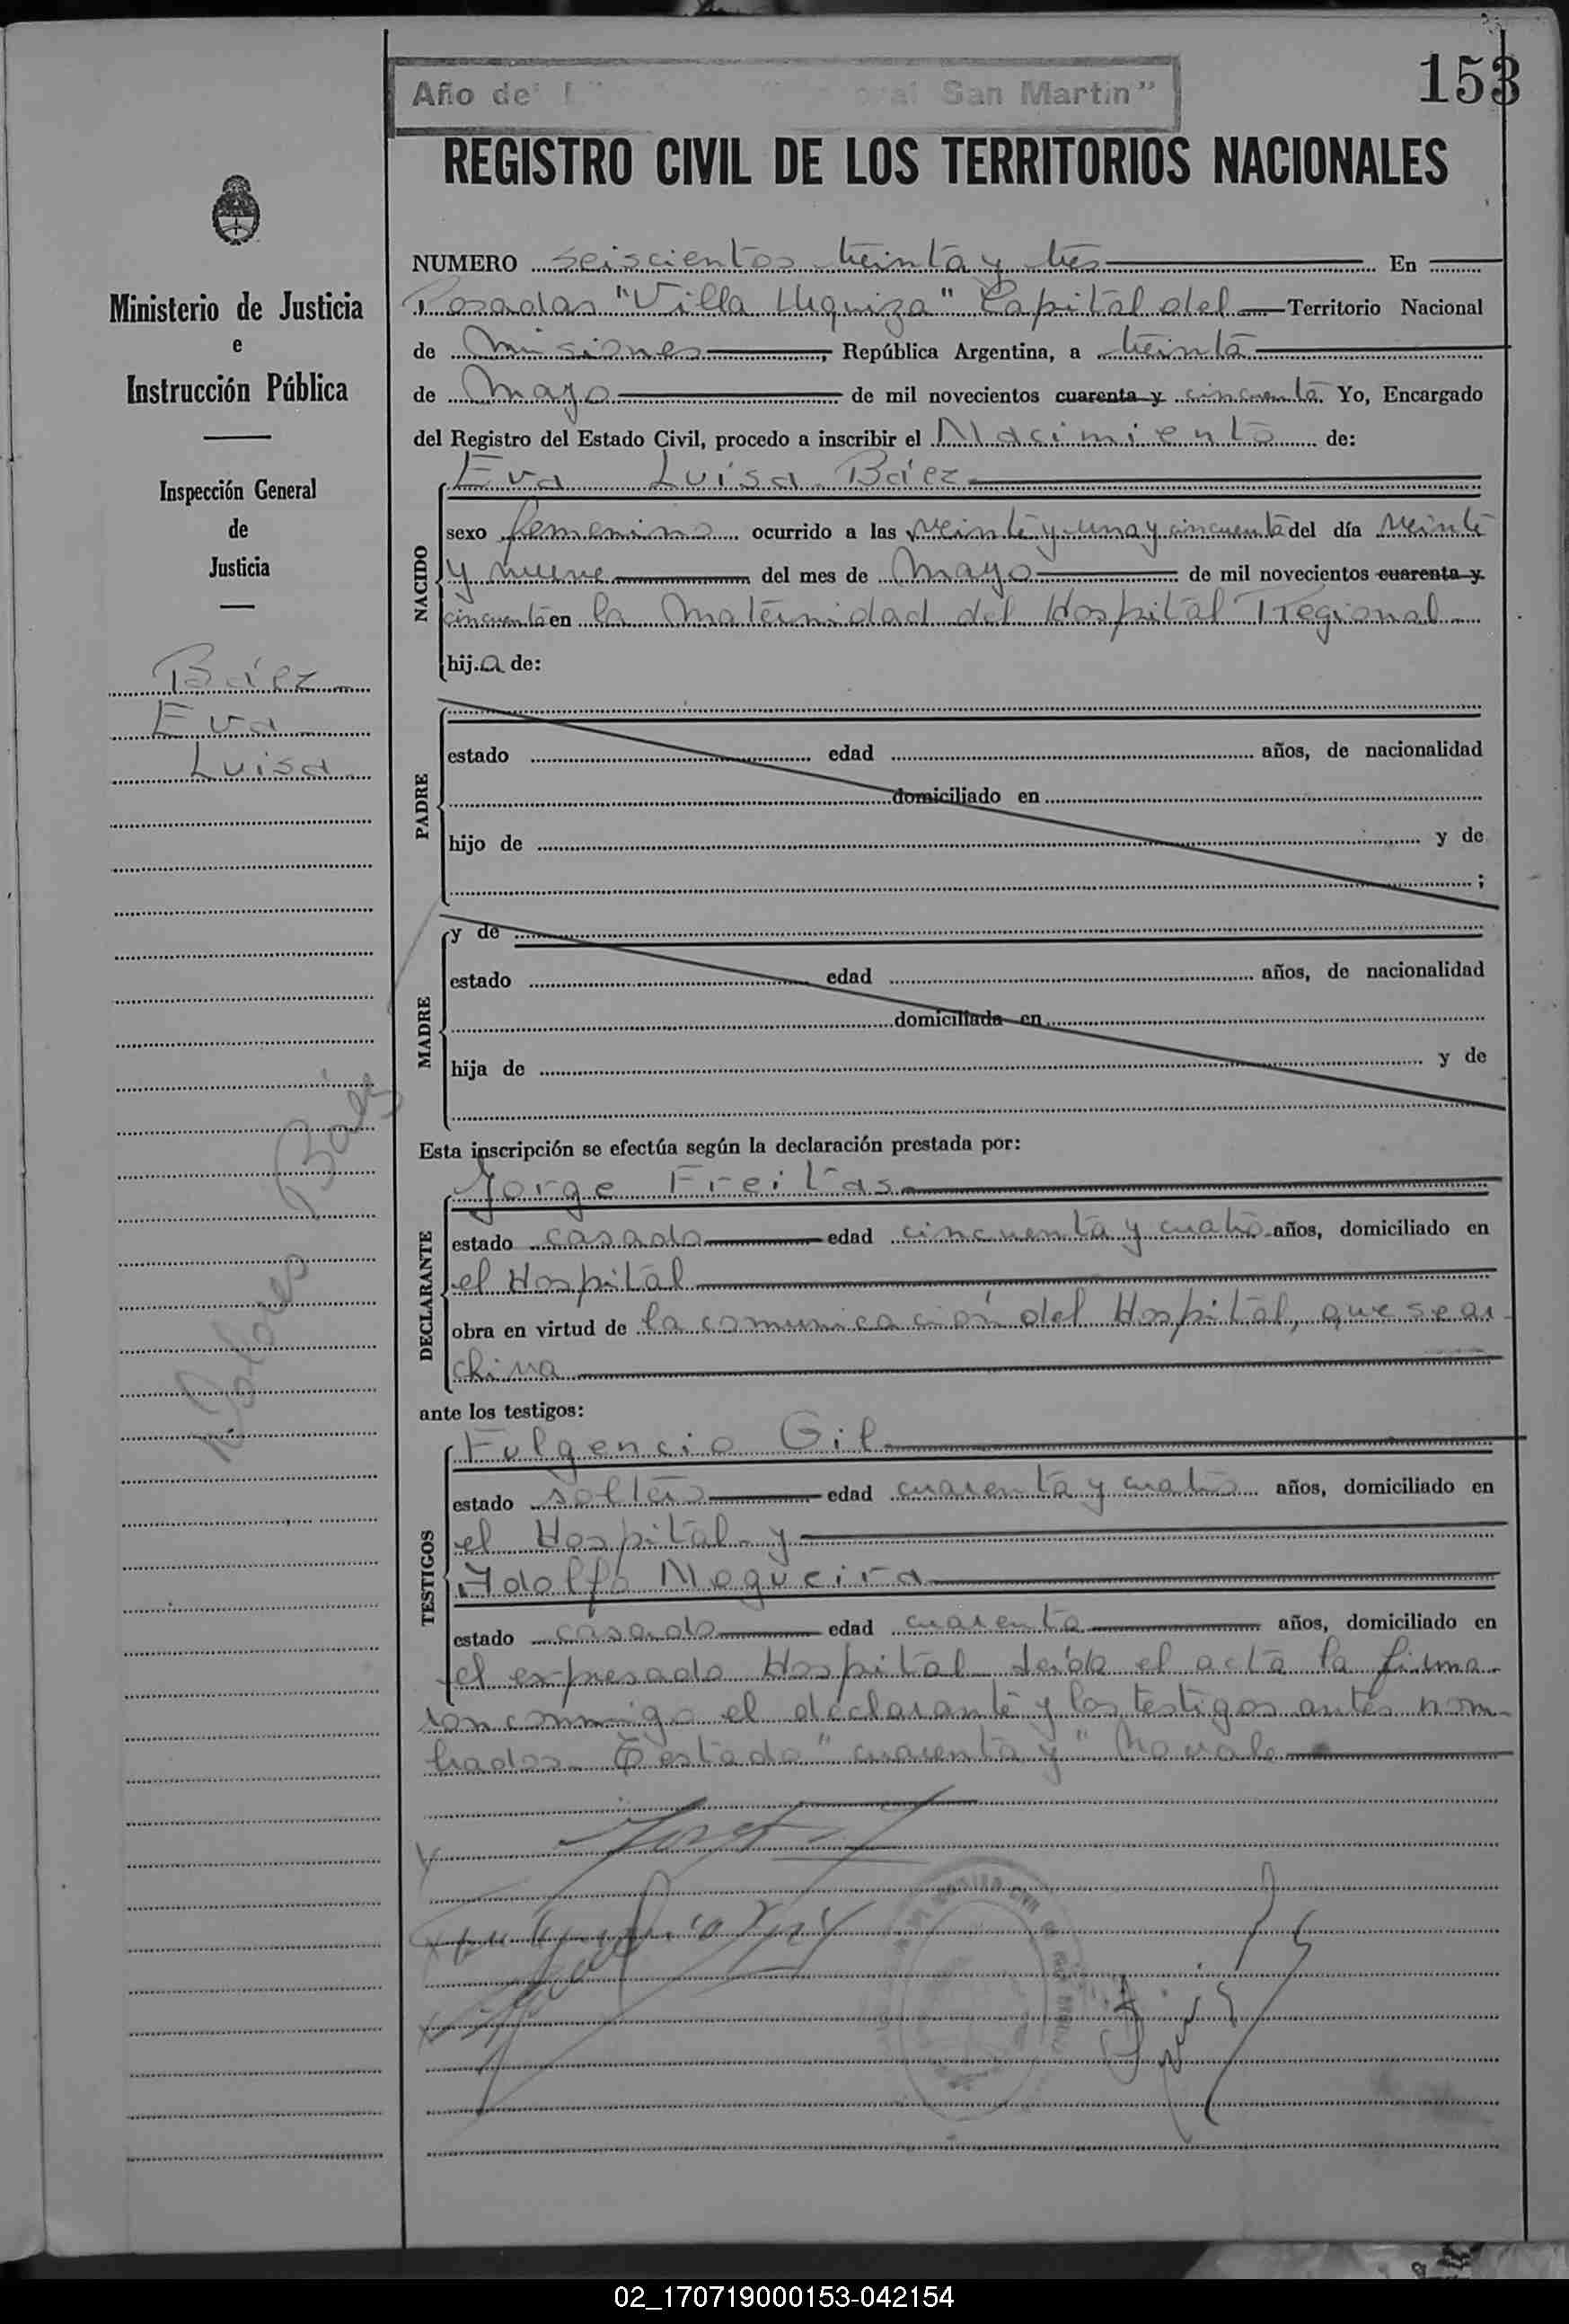 153
Año del San Martín”
REGISTRO CIVIL DE LOS TERRITORIOS NACIONALES
Ministerio de Justicia
e
Instrucción Pública
Inspección General
de
Justicia
Báez
Eva
Luisa
Dolores Báez
NUMERO seiscientos treinta y tres En
Posadas "Villa Urquiza" Capital del Territorio Nacional
de Misiones, República Argentina, a treinta
de Mayo de mil novecientos cuarenta y cincuenta Yo, Encargado
del Registro del Estado Civil, procedo a inscribir el Nacimiento de:
NACIDO
Eva Luisa Báez
sexo femenino ocurrido a las veinte y una y cincuenta del día veinte
y nueve del mes de Mayo de mil novecientos cuarenta y
cincuenta en la Maternidad del Hospital Regional
hija de:
PADRE
estado edad años, de nacionalidad
domiciliado en
hijo de y de
;
MADRE
y de
estado edad años, de nacionalidad
domiciliada en
hija de y de
Esta inscripción se efectúa según la declaración prestada por:
DECLARANTE
Jorge Freitas
estado casado edad cincuenta y cuatro años, domiciliado en
el Hospital
obra en virtud de la comunicación del Hospital, que se ar
chiva
ante los testigos:
TESTIGOS
Fulgencio Gil
estado soltero edad cuarenta y cuatro años, domiciliado en
el Hospital y
Adolfo Nogueira
estado casado edad cuarenta años, domiciliado en
el expresado Hospital leída el acta la firma
ron conmigo el declarante y los testigos antes nom
brados. Testado "cuarenta y" No vale
02_170719000153-042154